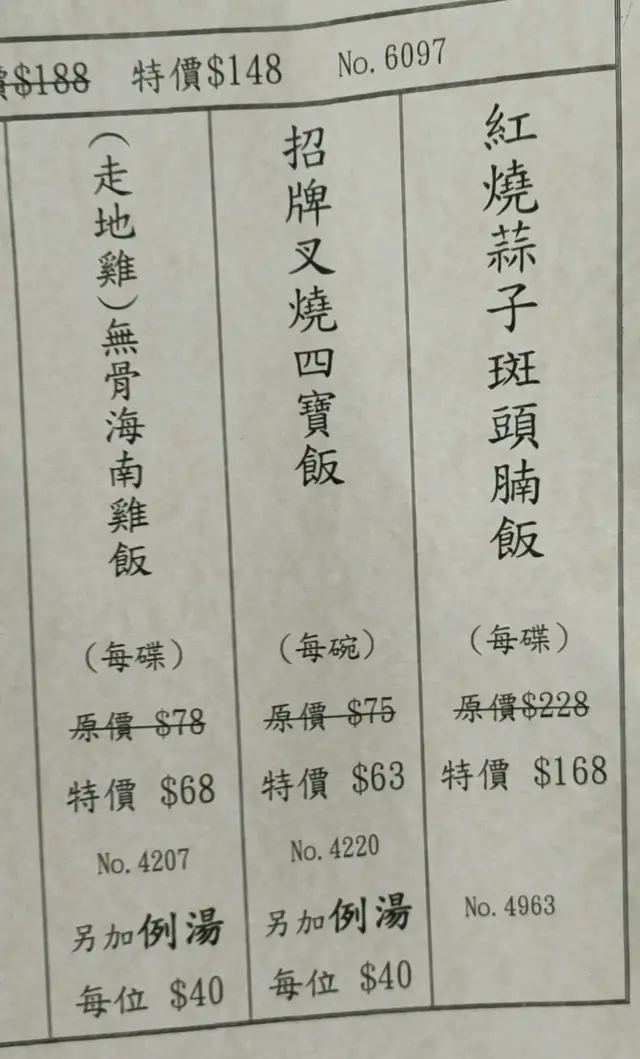 $188 特價$148 No.6097
紅燒蒜子斑頭腩飯
(每碟)
原價$228
特價 $168
No.4963
招牌叉燒四寶飯
(每碗)
原價 $75
特價 $63
No.4220
另加例湯
每位 $40
(走地雞)無骨海南雞飯
(每碟)
原價 $78
特價 $68
No.4207
另加例湯
每位 $40